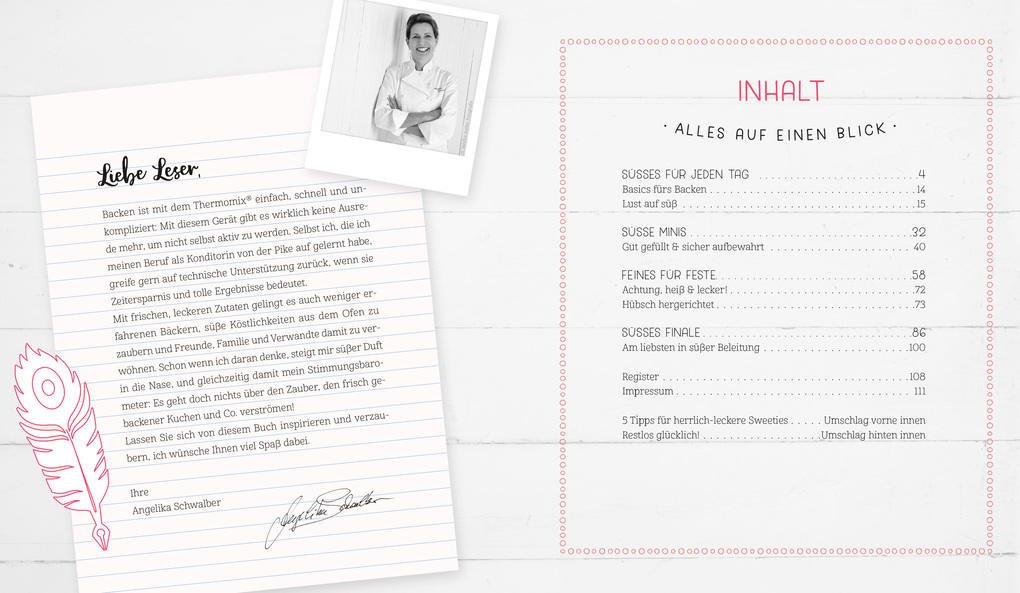 Liebe Leser,
Backen ist mit dem Thermomix® einfach, schnell und un-
kompliziert: Mit diesem Gerät gibt es wirklich keine Ausre-
de mehr, um nicht selbst aktiv zu werden. Selbst ich, die ich
meinen Beruf als Konditorin von der Pike auf gelernt habe,
greife gern auf technische Unterstützung zurück, wenn sie
Zeitersparnis und tolle Ergebnisse bedeutet.
Mit frischen, leckeren Zutaten gelingt es auch weniger er-
fahrenen Bäckern, süße Köstlichkeiten aus dem Ofen zu
zaubern und Freunde, Familie und Verwandte damit zu ver-
wöhnen. Schon wenn ich daran denke, steigt mir süßer Duft
in die Nase, und gleichzeitig damit mein Stimmungsbaro-
meter: Es geht doch nichts über den Zauber, den frisch ge-
backener Kuchen und Co. verströmen!
Lassen Sie sich von diesem Buch inspirieren und verzau-
bern, ich wünsche Ihnen viel Spaß dabei.
Ihre
Angelika Schwalber
Angelika Schwalber
INHALT
· ALLES AUF EINEN BLICK ·
SÜSSES FÜR JEDEN TAG . . . . . . . . . . . . . . . . . . . . 4
Basics fürs Backen . . . . . . . . . . . . . . . . . . . . . . . . . . 14
Lust auf süß . . . . . . . . . . . . . . . . . . . . . . . . . . . . . . 15
SÜSSE MINIS . . . . . . . . . . . . . . . . . . . . . . . . . . . . 32
Gut gefüllt & sicher aufbewahrt . . . . . . . . . . . . . . . . . 40
FEINES FÜR FESTE . . . . . . . . . . . . . . . . . . . . . . . . 58
Achtung, heiß & lecker! . . . . . . . . . . . . . . . . . . . . . . 72
Hübsch hergerichtet . . . . . . . . . . . . . . . . . . . . . . . . 73
SÜSSES FINALE . . . . . . . . . . . . . . . . . . . . . . . . . . 86
Am liebsten in süßer Beleitung . . . . . . . . . . . . . . . . . 100
Register . . . . . . . . . . . . . . . . . . . . . . . . . . . . . . . . 108
Impressum . . . . . . . . . . . . . . . . . . . . . . . . . . . . . . 111
5 Tipps für herrlich-leckere Sweeties . . . . . Umschlag vorne innen
Restlos glücklich! . . . . . . . . . . . . . . . . . Umschlag hinten innen